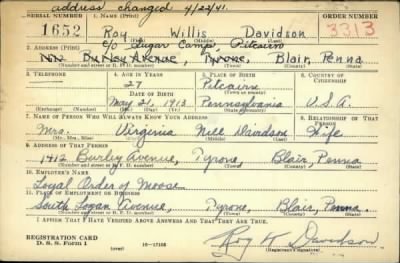 address changed 4/22/41.
SERIAL NUMBER 1. NAME (Print) ORDER NUMBER
1652 Roy Willis Davidson 3313
(First) (Middle) (Last)
c/o Sugar Camp, Pitcairn
2. ADDRESS (Print)
Burley Avenue, Tyrone, Blair, Penna
(Number and street or R. F. D. number) (Town) (County) (State)
3. TELEPHONE 4. AGE IN YEARS 5. PLACE OF BIRTH 6. COUNTRY OF CITIZENSHIP
27 Pitcairn
DATE OF BIRTH (Town or county)
May 21, 1913 Pennsylvania U.S.A.
(Exchange) (Number) (Mo.) (Day) (Yr.) (State or country)
7. NAME OF PERSON WHO WILL ALWAYS KNOW YOUR ADDRESS 8. RELATIONSHIP OF THAT PERSON
Mrs. Virginia Nell Davidson Wife
(Mr., Mrs., Miss) (First) (Middle) (Last)
9. ADDRESS OF THAT PERSON
1412 Burley Avenue, Tyrone, Blair, Penna
(Number and street or R. F. D. number) (Town) (County) (State)
10. EMPLOYER'S NAME
Loyal Order of Moose
11. PLACE OF EMPLOYMENT OR BUSINESS
South Logan Avenue, Tyrone, Blair, Penna.
(Number and street or R. F. D. number) (Town) (County) (State)
I AFFIRM THAT I HAVE VERIFIED ABOVE ANSWERS AND THAT THEY ARE TRUE.
REGISTRATION CARD
D. S. S. Form 1 (over) 16—17105 Roy W Davidson
(Registrant's signature)